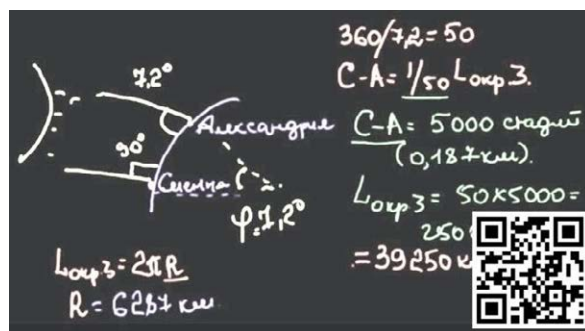 7,2°
90°
Александрия
Сиенна
φ=7,2°
Lокр З = 2πR
R = 6287 км.
360/7,2 = 50
С-А = 1/50 Lокр З.
С-А = 5000 стадий
(0,187км).
Lокр З = 50×5000 =
250
= 39250 к